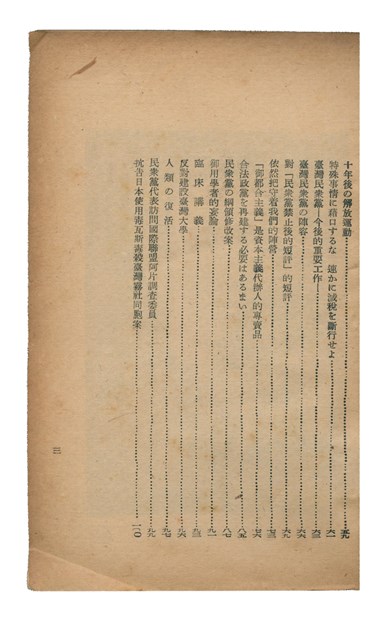 十年後の解放運動……五九
特殊事情に藉口するな 速かに減稅を斷行せよ……六一
臺灣民衆黨—今後的重要工作……六三
臺灣民衆黨の陣容……六六
對「民衆黨禁止後的短評」的短評……六八
依然把守着我們的陣營……七三
「御都合主義」是資本主義代辦人的專賣品……七六
合法政黨を再建する必要はあるまい……八五
民衆黨の綱領修改案……八七
御用學者的妄論……九一
臨床講義……九三
反對建設臺灣大學……九六
人類の復活……九七
民衆黨代表訪問國際聯盟阿片調查委員……九九
抗告日本使用毒瓦斯毒殺臺灣霧社同胞案……一一〇
三